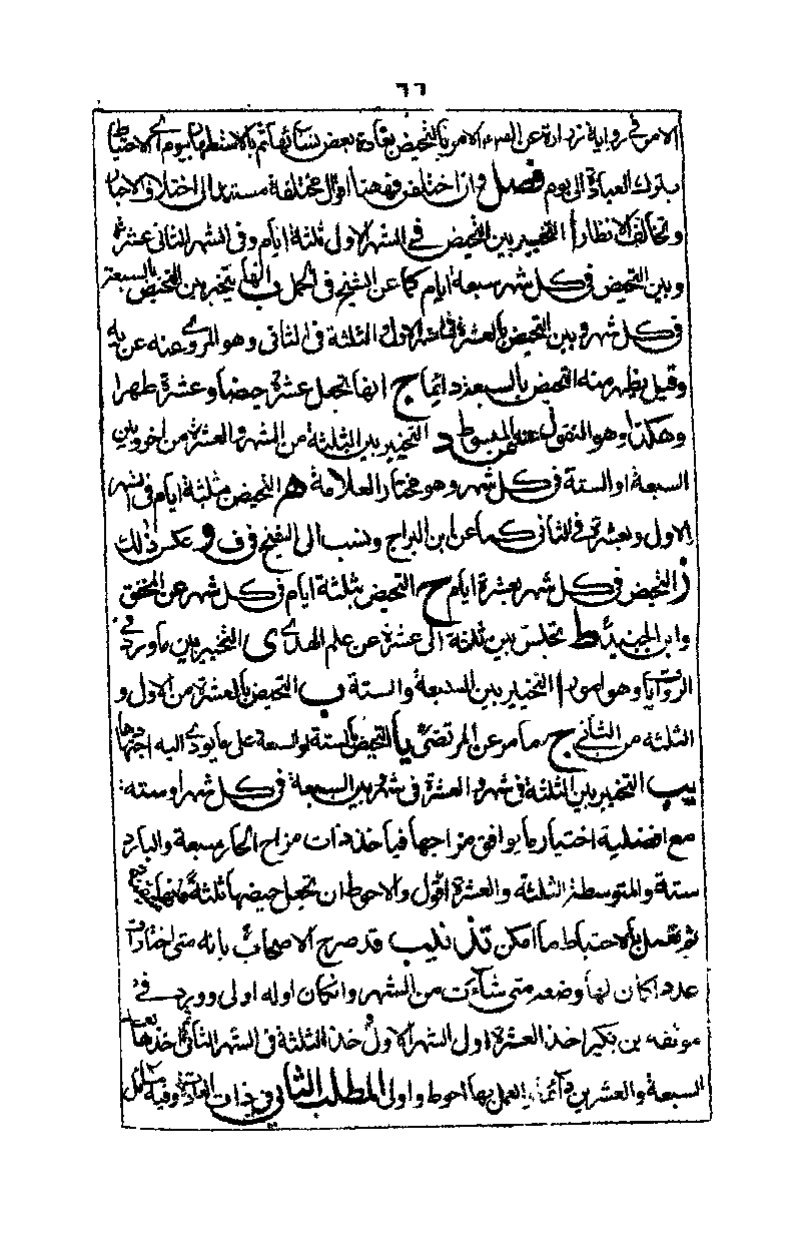 ٦٦
الامر في رواية زرارة عن الامر بالتحيض بعادة بعض نسائها ثم بالاستظهار بيوم اى الاحتياط
بترك العبادة الى يوم فصل وان اختلفن فههنا اقوال مختلفة مستندة الى اختلاف الاخبار
وتخالف الانظار ا التخيير بين التحيض في الشهر الاول ثلثة ايام وفي الشهر الثاني عشرة
وبين التحيض في كل شهر سبعة ايام كما عن الشيخ في الجمل ب انها يتخير بين التحيض بالسبعة
في كل شهر وبين التحيض بالعشرة في الشهر الاول الثلثة في الثاني وهو المروى عنه عن يه
وقيل يظهر منه التحيض بالسبعة دائما ج انها تجعل عشرة حيضا وعشرة طهرا
وهكذا وهو المنقول عنه عن المبسوط د التخيير بين الثلثة من الشهر والعشرة من اخر وبين
السبعة او الستة في كل شهر وهو مختار العلامة ه التحيض بثلثة ايام في الشهر
الاول وبعشرة في الثاني كما عن ابن البراج ونسب الى الشيخ في ف و عكس ذلك
ز التحيض في كل شهر بعشرة ايام ح التحيض بثلثة ايام في كل شهر عن المحقق
وابن الجنيد ط تجلس بين ثلثة الى عشرة عن علم الهدى ى التخيير بين ما ورد في
الروايات وهو امور ا التخيير بين السبعة والستة ب التحيض بالعشرة من الاول و
الثلثة من الثاني ج ما مر عن المرتضى يا التحيض بالستة او السبعة على ما يودى اليه اجتهادها
يب التخيير بين الثلثة في شهر والعشرة في شهر وبين السبعة في كل شهر او ستة
مع افضلية اختيار ما يوافق مزاجها فياخذ ذات مزاج الحار سبعة والبارد
ستة والمتوسطة الثلثة والعشرة اقول والاحوط ان تجعل حيضها ثلثة
ثم تعمل بالاحتياط ما امكن تذنيب قد صرح الاصحاب بانه متى اختارت
عددا كان لها وضعه متى شاءت من الشهر وان كان اوله اولى وورد في
موثقة بن بكير اخذ العشرة اول الشهر الاول واخذ الثلثة في الشهر الثاني
السبعة والعشرين دائما العمل بها احوط واولى المطلب الثاني في ذات العادة وفيه مسائل